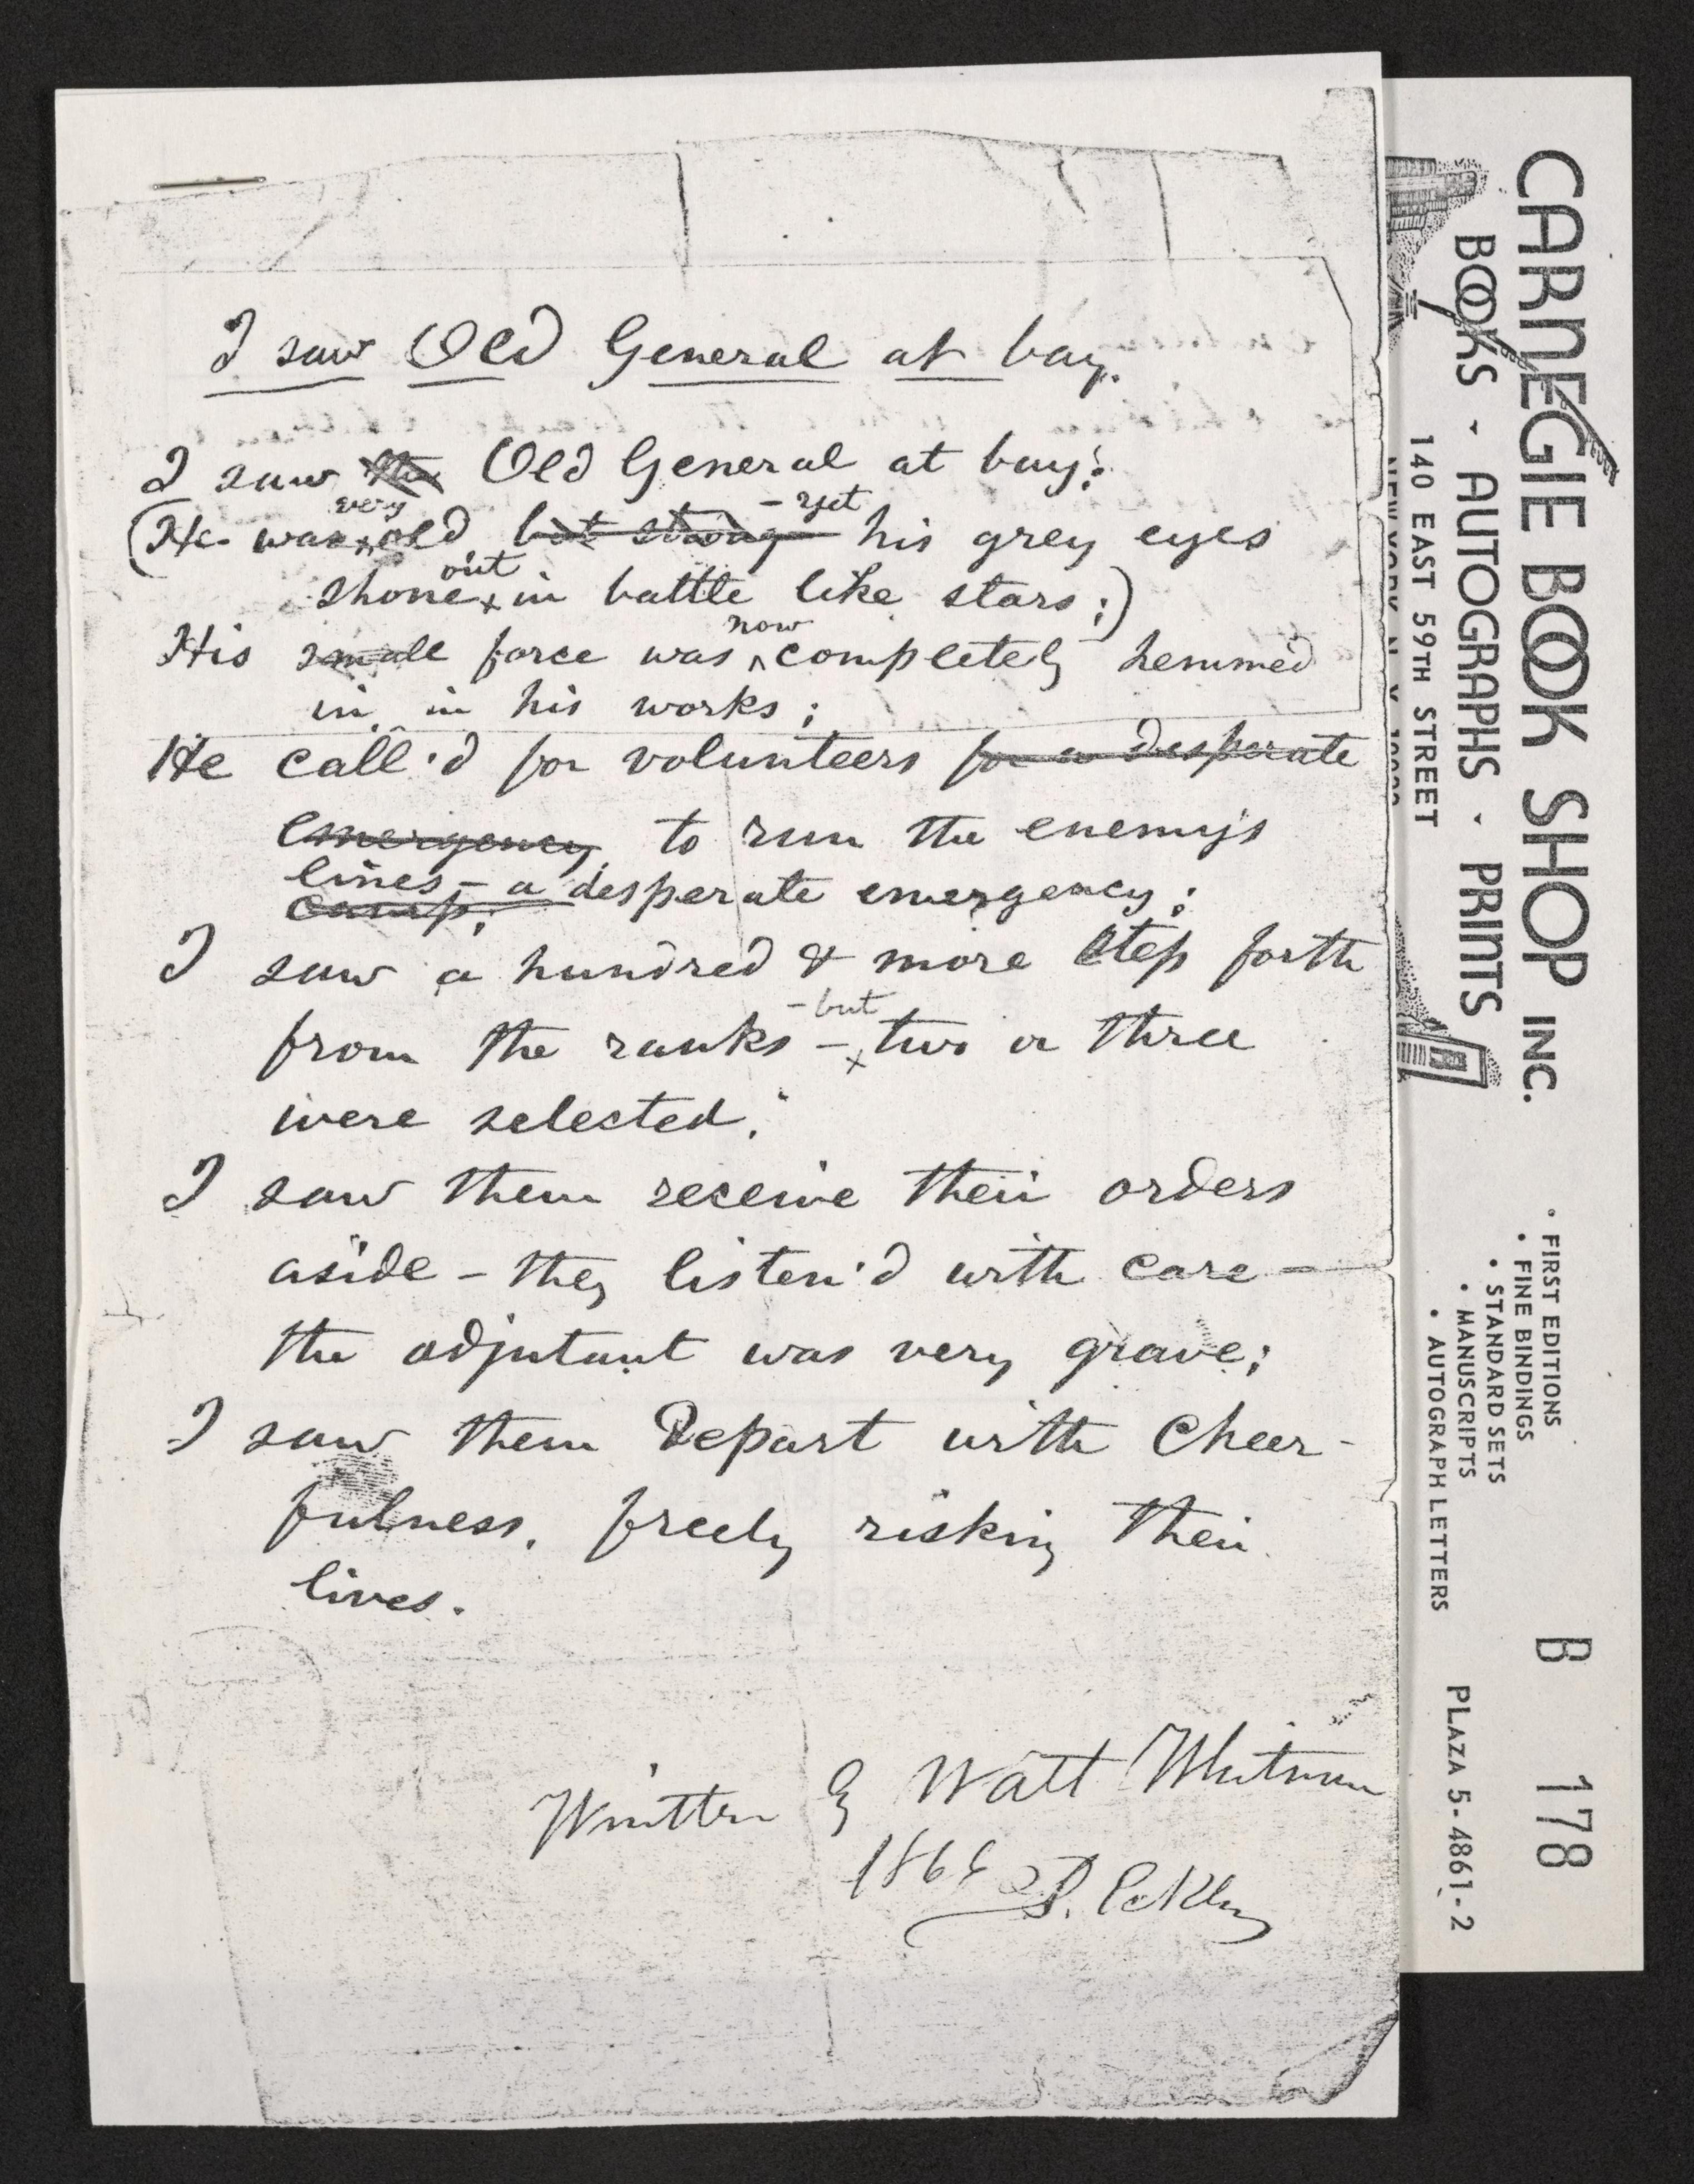 I saw Old General at bay.
I saw the Old General at bay;
very – yet
(He was old, but strong his grey eyes
out
shone in battle like stars;)
now
His small force was completely hemmed
in, in his works;
He call'd for volunteers for a desperate
emergency, to run the enemy's
lines – a desperate emergency;
camp;
I saw a hundred & more step forth
– but
from the ranks – two or three
were selected;
I saw them receive their orders
aside – they listen'd with care –
the adjutant was very grave;
I saw them depart with cheer-
fulness, freely risking their
lives.
Written by Walt Whitman
186
CARNEGIE BOOK SHOP INC.
BOOKS · AUTOGRAPHS · PRINTS
140 EAST 59TH STREET
NEW YORK N. Y.
• FIRST EDITIONS
• FINE BINDINGS
• STANDARD SETS
• MANUSCRIPTS
• AUTOGRAPH LETTERS
B 178
PLAZA 5-4861-2